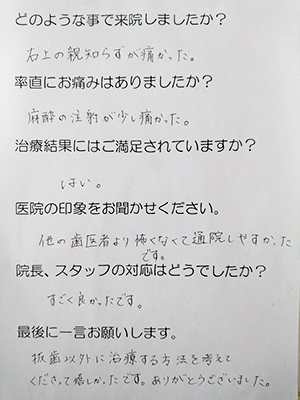 どのような事で来院しましたか？
右上の親知らずが痛かった。
率直にお痛みはありましたか？
麻酔の注射が少し痛かった。
治療結果にはご満足されていますか？
はい。
医院の印象をお聞かせください。
他の歯医者より怖くなくて通院しやすかった
です。
院長、スタッフの対応はどうでしたか？
すごく良かったです。
最後に一言お願いします。
抜歯以外に治療する方法を考えて
くださって嬉しかったです。ありがとうございました。